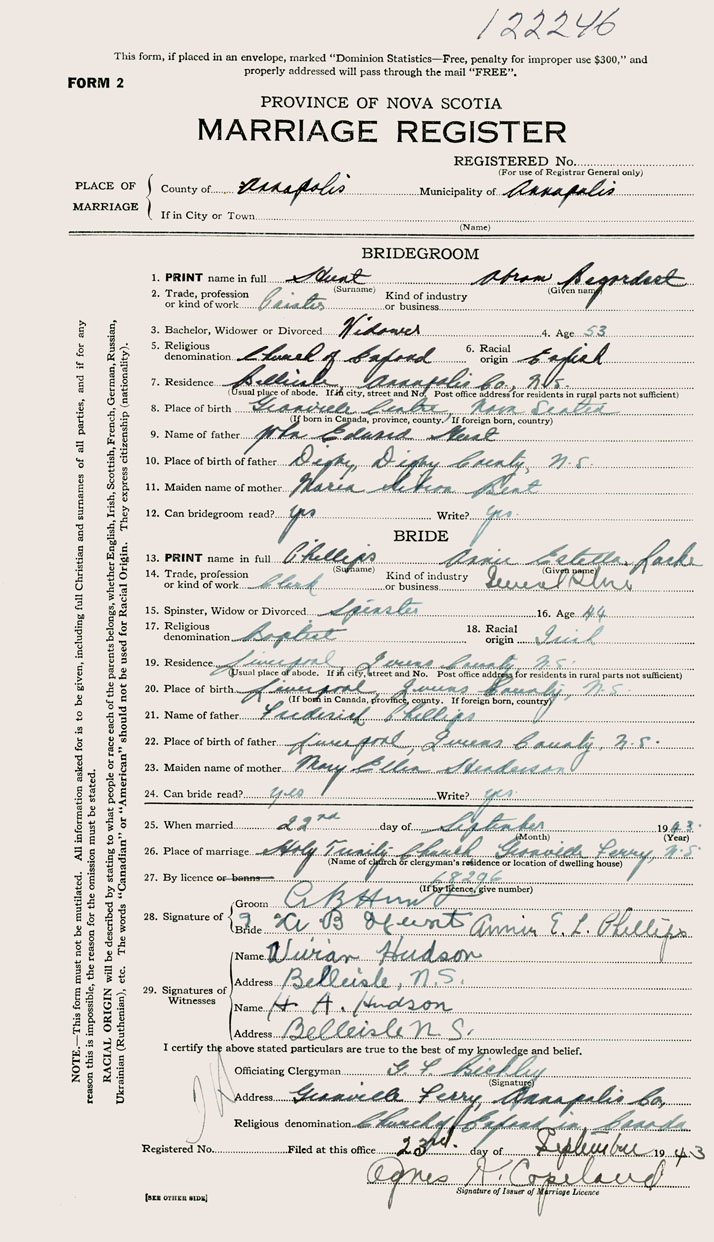 122246
This form, if placed in an envelope, marked "Dominion Statistics—Free, penalty for improper use $300," and
properly addressed will pass through the mail "FREE".
FORM 2
PROVINCE OF NOVA SCOTIA
MARRIAGE REGISTER
REGISTERED No.
(For use of Registrar General only)
PLACE OF MARRIAGE
County of Annapolis Municipality of Annapolis
If in City or Town
(Name)
BRIDEGROOM
1. PRINT name in full Hunt Abram
(Surname) (Given name)
2. Trade, profession or kind of work Painter Kind of industry or business
3. Bachelor, Widower or Divorced Widower 4. Age 53
5. Religious denomination Church of England 6. Racial origin English
7. Residence Belleisle, Annapolis Co., N.S.
(Usual place of abode. If in city, street and No. Post office address for residents in rural parts not sufficient)
8. Place of birth Granville Centre Nova Scotia
(If born in Canada, province, county. If foreign born, country)
9. Name of father John Edward Hunt
10. Place of birth of father Digby, Digby County, N.S.
11. Maiden name of mother Maria Bent
12. Can bridegroom read? yes Write? yes.
BRIDE
13. PRINT name in full Phillips Annie Estella Locke
(Surname) (Given name)
14. Trade, profession or kind of work Clerk Kind of industry or business General Store
15. Spinster, Widow or Divorced Spinster 16. Age 44
17. Religious denomination Baptist 18. Racial origin Irish
19. Residence Liverpool, Queens County, N.S.
(Usual place of abode. If in city, street and No. Post office address for residents in rural parts not sufficient)
20. Place of birth Liverpool, Queens County, N.S.
(If born in Canada, province, county. If foreign born, country)
21. Name of father Frederick Phillips
22. Place of birth of father Liverpool, Queens County N.S.
23. Maiden name of mother Mary Ellen Henderson
24. Can bride read? yes Write? yes
25. When married 22nd day of September 1943.
(Month) (Year)
26. Place of marriage Holy Trinity Church Granville Ferry, N.S.
(Name of church or clergyman's residence or location of dwelling house)
27. By licence or banns 68296
(If by licence, give number)
28. Signature of
Groom A B Hunt
Bride B Hunt Annie E. L. Phillips
29. Signatures of Witnesses
Name Vivian Hudson
Address Belleisle, N.S.
Name H. A. Hudson
Address Belleisle N.S.
I certify the above stated particulars are true to the best of my knowledge and belief.
Officiating Clergyman
(Signature)
Address Granville Ferry, Annapolis Co,
Religious denomination Church of England in Canada
Registered No. Filed at this office 23rd. day of September 1943
Agnes K. Copeland
Signature of Issuer of Marriage Licence
[SEE OTHER SIDE]
NOTE.—This form must not be mutilated. All information asked for is to be given, including full Christian and surnames of all parties, and if for any
reason this is impossible, the reason for the omission must be stated.
RACIAL ORIGIN will be described by stating to what people or race each of the parents belongs, whether English, Irish, Scottish, French, German, Russian,
Ukrainian (Ruthenian), etc. The words "Canadian" or "American" should not be used for Racial Origin. They express citizenship (nationality).